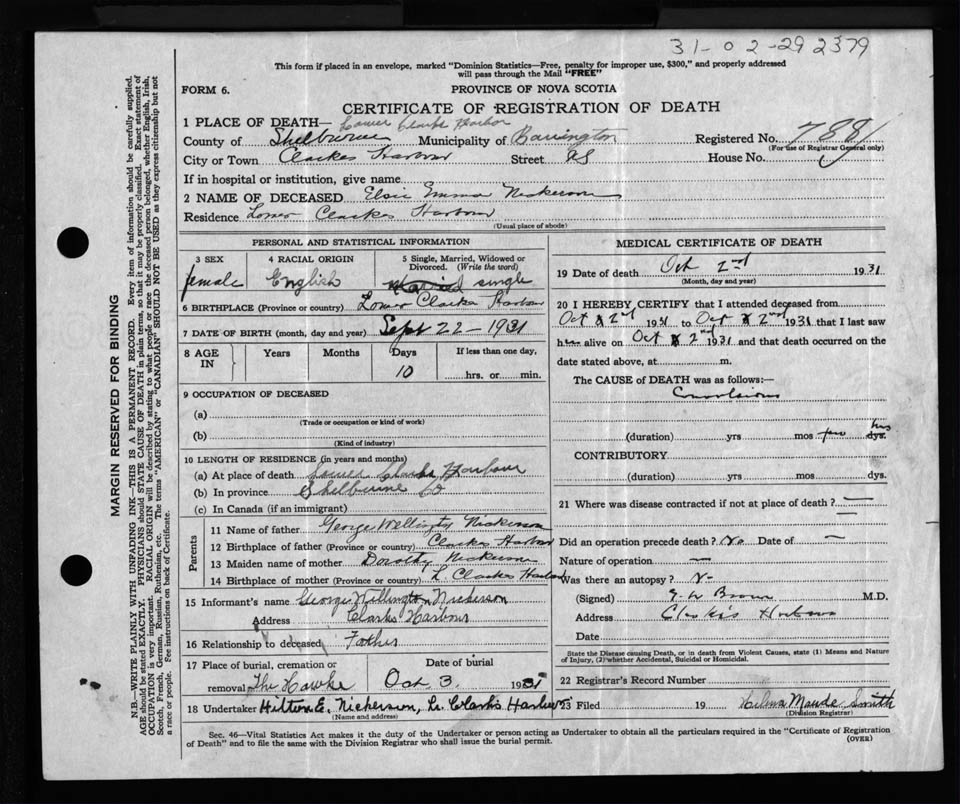 31-02-29 2379
This form if placed in an envelope, marked "Dominion Statistics—Free, penalty for improper use, $300," and properly addressed
will pass through the Mail "FREE"
FORM 6. PROVINCE OF NOVA SCOTIA
CERTIFICATE OF REGISTRATION OF DEATH
1 PLACE OF DEATH— Lower Clarks Harbor
County of Shelburne Municipality of Barrington Registered No. 7881
(For use of Registrar General only)
City or Town Clarkes Harbour Street House No.
If in hospital or institution, give name
2 NAME OF DECEASED Elsie Emma Nickerson
Residence Lower Clarkes Harbour
(Usual place of abode)
PERSONAL AND STATISTICAL INFORMATION
3 SEX 4 RACIAL ORIGIN 5 Single, Married, Widowed or
Divorced. (Write the word)
female English married single
6 BIRTHPLACE (Province or country) Lower Clarkes Harbour
7 DATE OF BIRTH (month, day and year) Sept 22 - 1931
8 AGE IN Years Months Days If less than one day,
10 hrs. or min.
9 OCCUPATION OF DECEASED
(a)
(Trade or occupation or kind of work)
(b)
(Kind of industry)
10 LENGTH OF RESIDENCE (in years and months)
(a) At place of death Lower Clarks Harbour
(b) In province Shelburne Co
(c) In Canada (if an immigrant)
Parents
11 Name of father George Wellington Nickerson
12 Birthplace of father (Province or country) Clarkes Harbor
13 Maiden name of mother Dorothy Nickerson
14 Birthplace of mother (Province or country) L. Clarkes Harbor
15 Informant's name George Willington Nickerson
Address Clarks Harbour
16 Relationship to deceased Father
17 Place of burial, cremation or Date of burial
removal The Hawke Oct 3. 1931
18 Undertaker Hilton E. Nickerson, Lr. Clark's Harbor
(Name and address)
MEDICAL CERTIFICATE OF DEATH
19 Date of death Oct 2nd 1931
(Month, day and year)
20 I HEREBY CERTIFY that I attended deceased from
Oct 2nd 1931 to Oct 2nd 1931 that I last saw
h alive on Oct 2nd 1931 and that death occurred on the
date stated above, at m.
The CAUSE of DEATH was as follows:—
Convulsions
(duration) yrs mos few hrs dys.
CONTRIBUTORY
(duration) yrs mos dys.
21 Where was disease contracted if not at place of death? —
Did an operation precede death? No Date of —
Nature of operation —
Was there an autopsy?
(Signed) Brown M.D.
Address Clark's Harbour
Date
State the Disease causing Death, or in death from Violent Causes, state (1) Means and Nature
of Injury, (2) whether Accidental, Suicidal or Homicidal.
22 Registrar's Record Number
23 Filed 19 Wilma Maude Smith
(Division Registrar)
Sec. 46—Vital Statistics Act makes it the duty of the Undertaker or person acting as Undertaker to obtain all the particulars required in the "Certificate of Registration
of Death" and to file the same with the Division Registrar who shall issue the burial permit. (OVER)
MARGIN RESERVED FOR BINDING
N.B.—WRITE PLAINLY WITH UNFADING INK—THIS IS A PERMANENT RECORD. Every item of information should be carefully supplied.
AGE should be stated EXACTLY. PHYSICIANS should STATE CAUSE OF DEATH in plain terms, so that it may be properly classified. Exact statement of
OCCUPATION is very important. RACIAL ORIGIN will be described by stating to what people or race the deceased person belonged, whether English, Irish,
Scotch, French, German, Russian, Ruthenian, etc. The terms "AMERICAN" or "CANADIAN" SHOULD NOT BE USED as they express citizenship but not
a race or people. Fee instructions on back of Certificate.